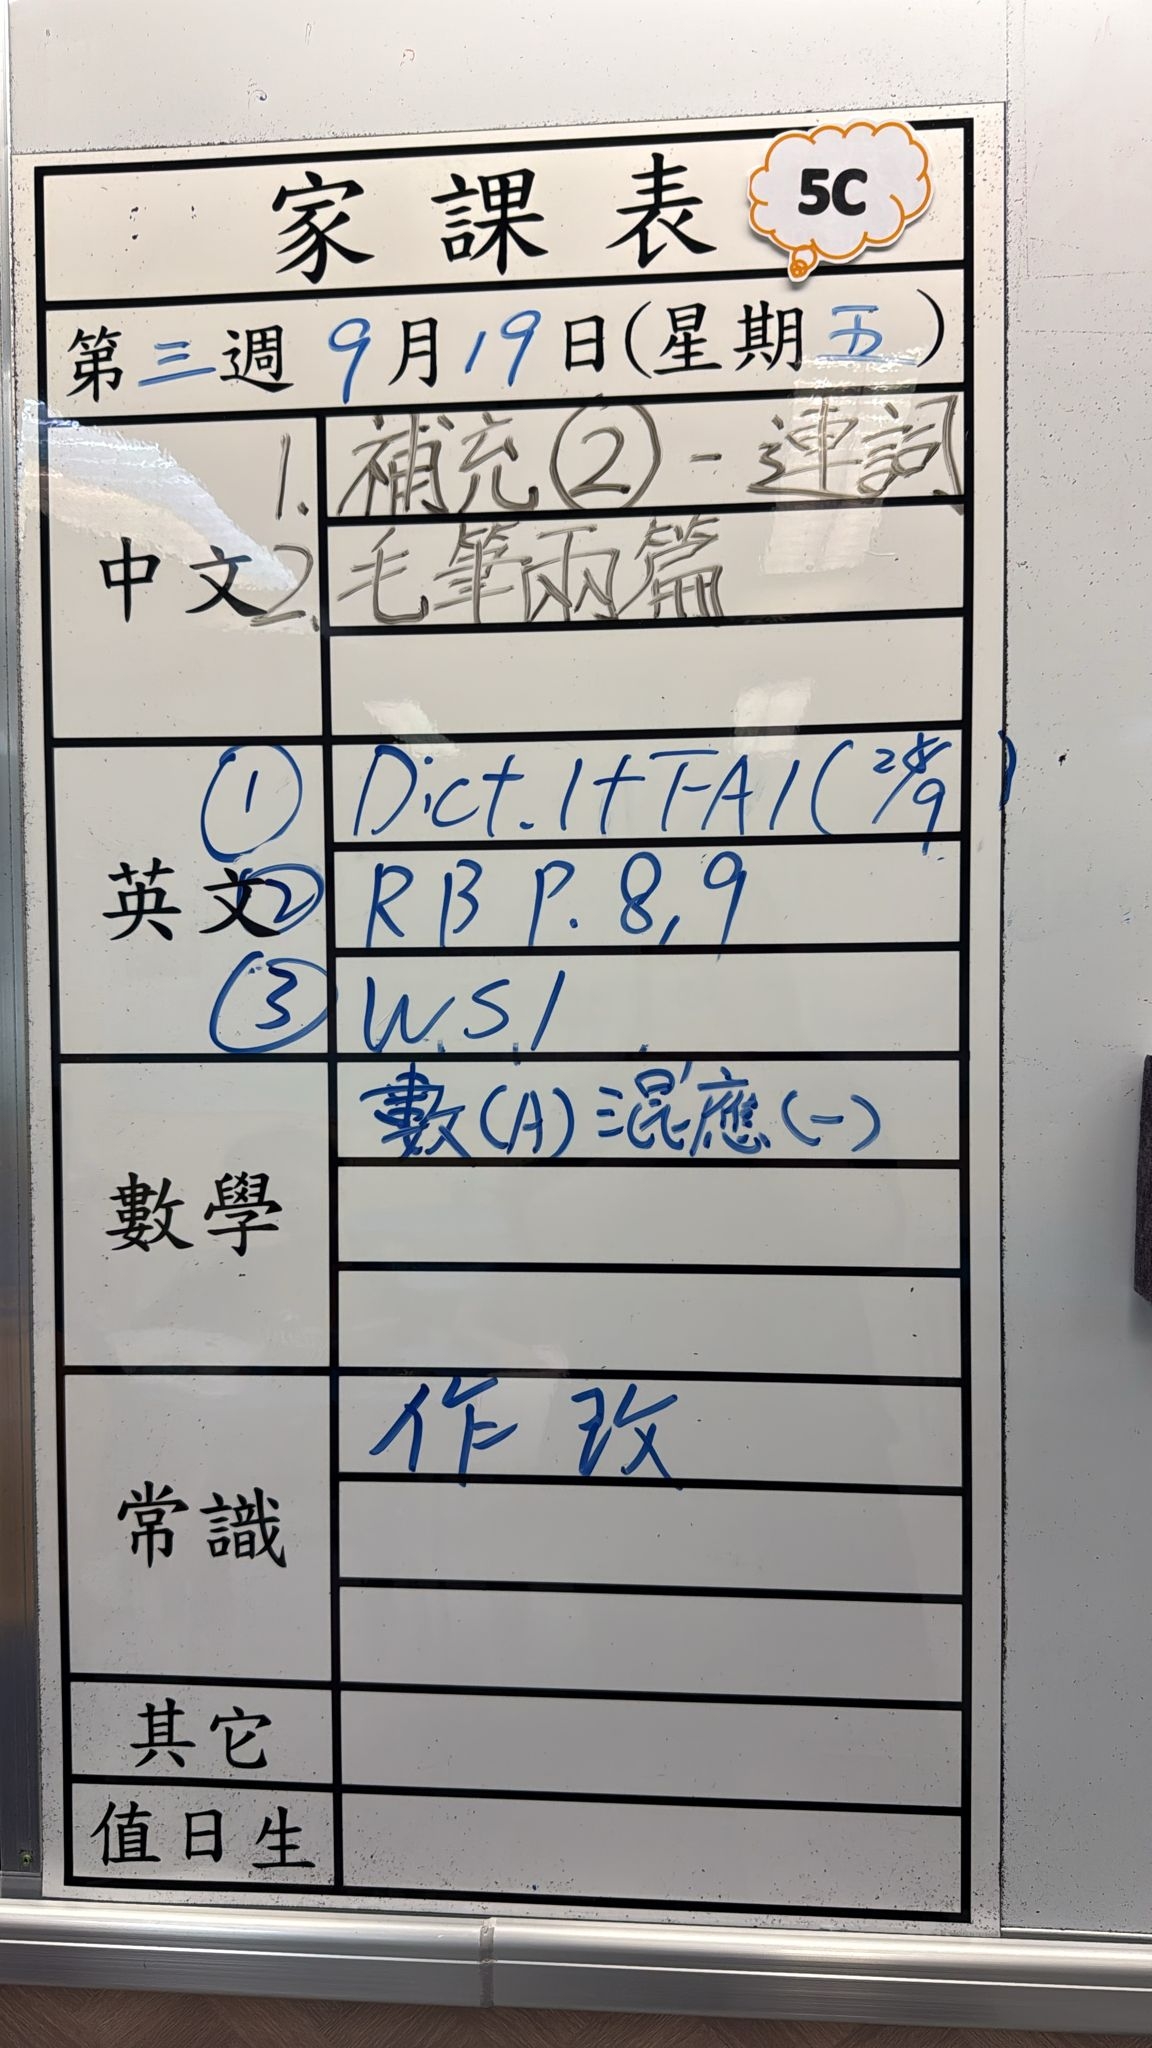 家課表 5C
第三週 9月19日(星期五)
中文
1. 補充② - 連詞
2. 毛筆兩篇
英文
① Dict. 1 + FA1 (
② RB P. 8, 9
③ W.S.1
數學
數(A) 混應(一)
常識
作 改
其它
值日生